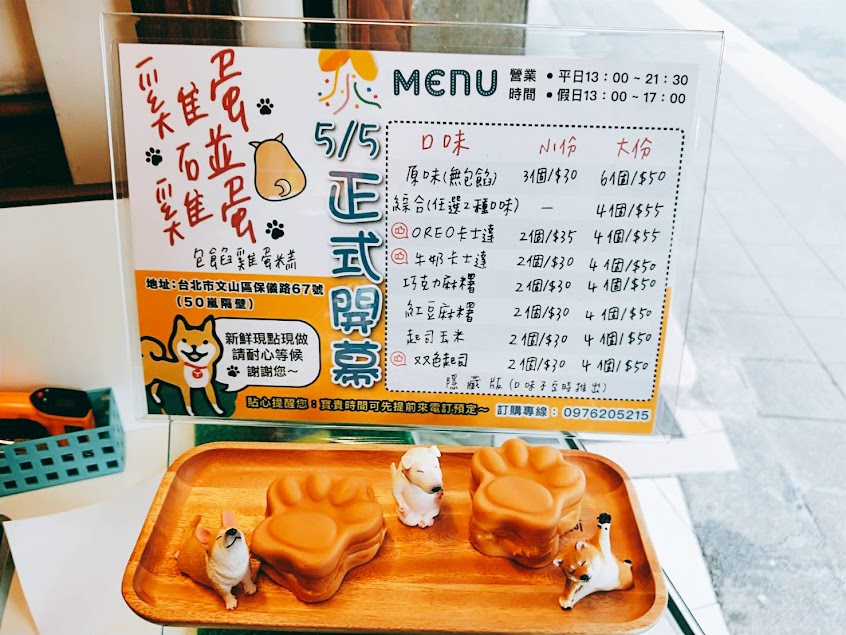 雞隹蛋蛋並雞石隹蛋
包餡雞蛋糕
地址:台北市文山區保儀路67號
(50嵐隔壁)
新鮮現點現做
請耐心等候
謝謝您~
5/5正式開幕
MENU
營業 •平日13:00~21:30
時間 •假日13:00~17:00
口味 小份 大份
原味(無包餡) 3個/$30 6個/$50
綜合(任選2種口味) — 4個/$55
OREO卡士達 2個/$35 4個/$55
牛奶卡士達 2個/$30 4個/$50
巧克力麻糬 2個/$30 4個/$50
紅豆麻糬 2個/$30 4個/$50
起司玉米 2個/$30 4個/$50
双色起司 2個/$30 4個/$50
隱藏版(口味不定時推出)
貼心提醒您:寶貴時間可先提前來電訂預定~ 訂購專線: 0976205215